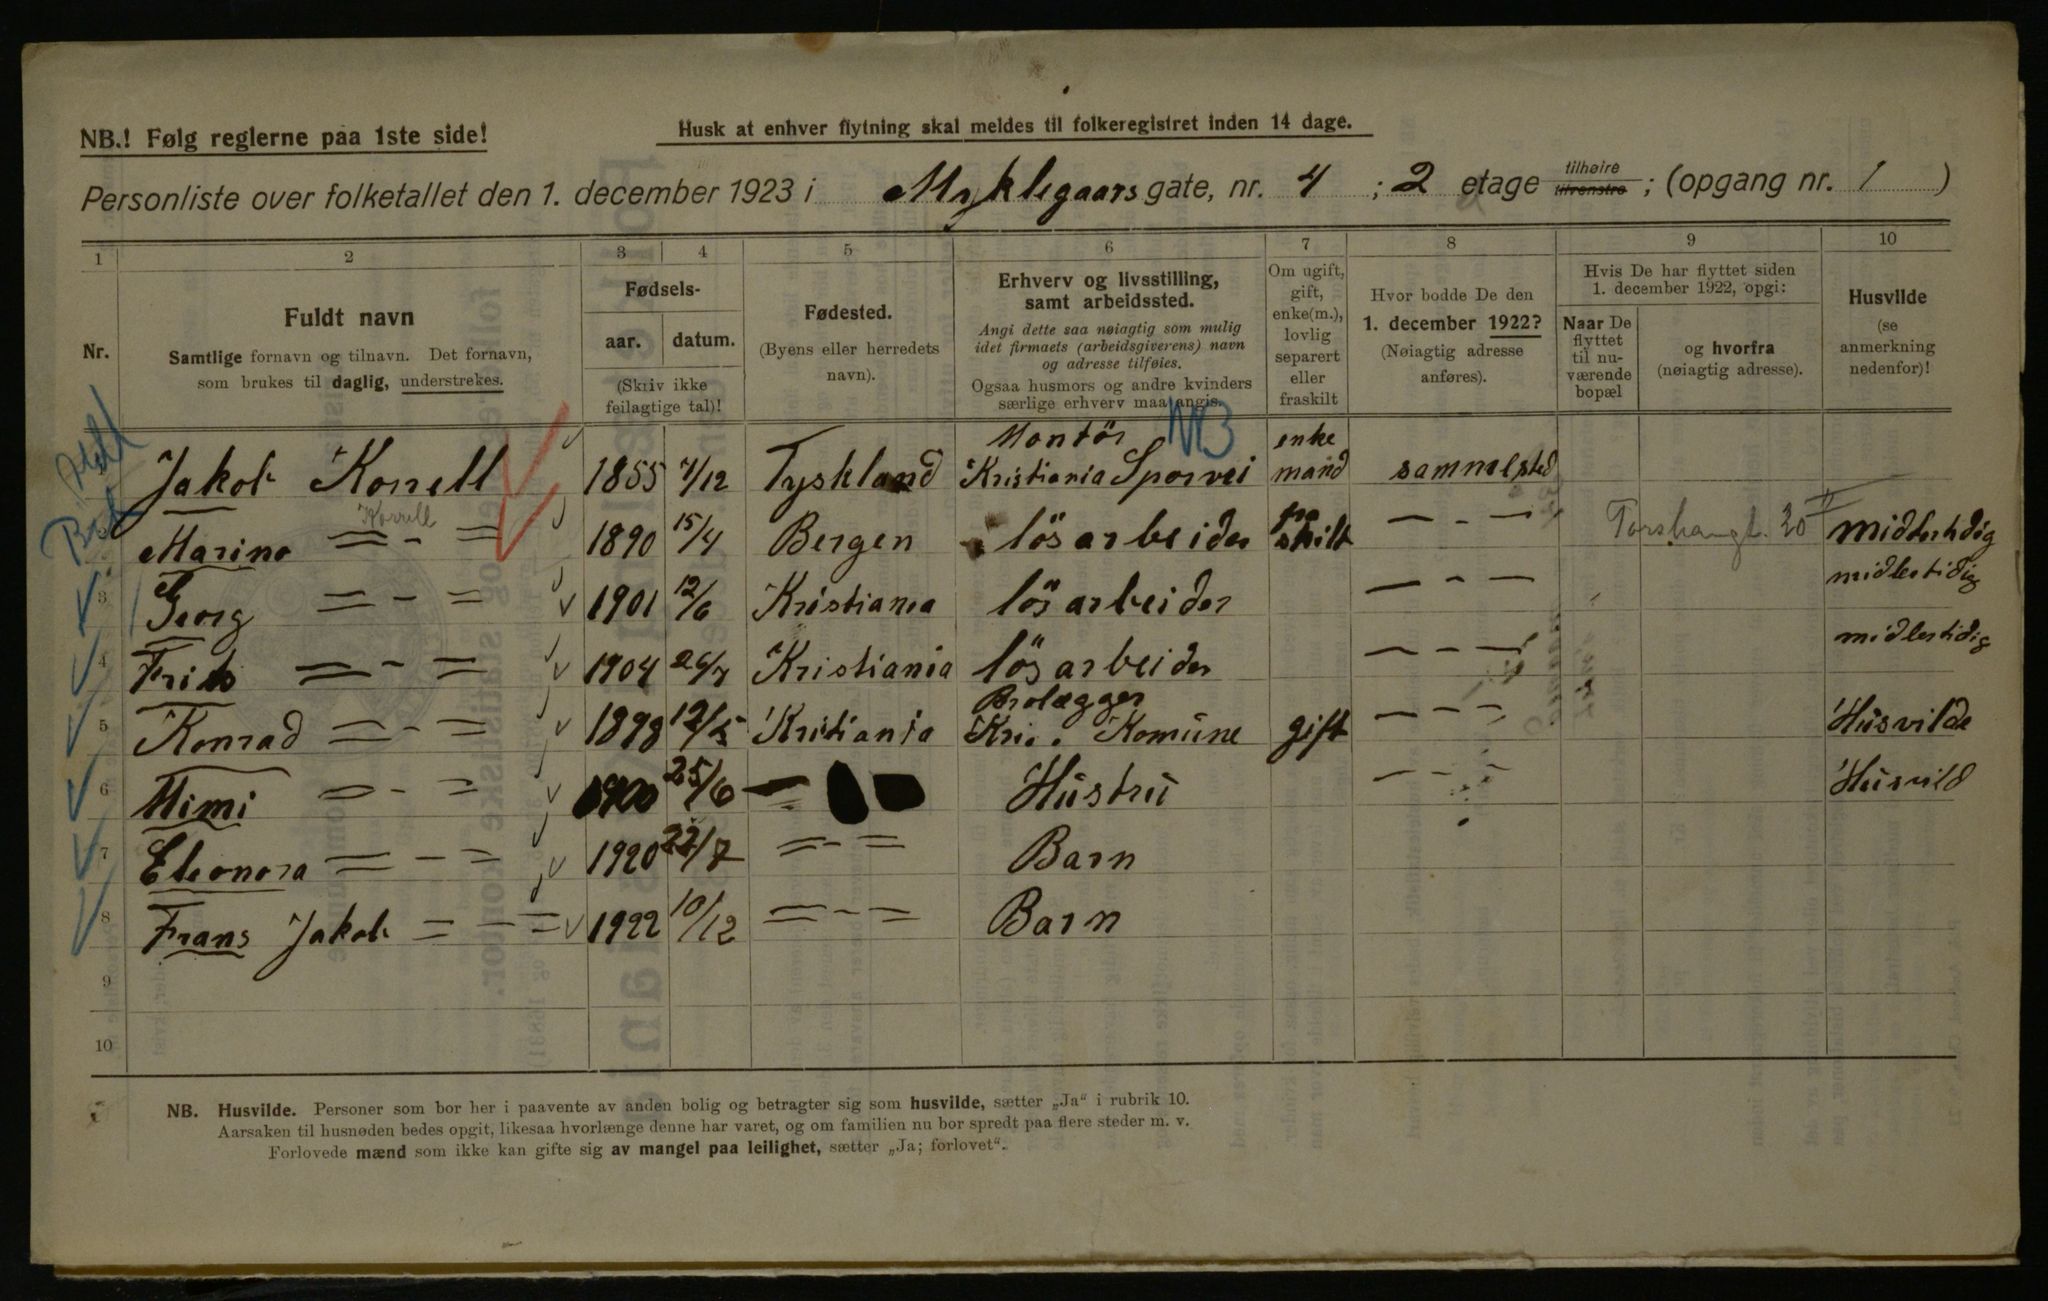 NB.! Følg reglerne paa 1ste side!
Husk at enhver flytning skal meldes til folkeregistret inden 14 dage.
Personliste over folketallet den 1. december 1923 i Myklegaars gate, nr. 4 ; 2 etage tilhøire tilvenstre ; (opgang nr. 1 )
1 2 3 4 5 6 7 8 9 10
Nr.
Fuldt navn
Samtlige fornavn og tilnavn. Det fornavn,
som brukes til daglig, understrekes.
Fødsels-
aar. datum.
(Skriv ikke
feilagtige tal)!
Fødested.
(Byens eller herredets
navn).
Erhverv og livsstilling,
samt arbeidssted.
Angi dette saa nøiagtig som mulig
idet firmaets (arbeidsgiverens) navn
og adresse tilføies.
Ogsaa husmors og andre kvinders
særlige erhverv maa angis.
Om ugift,
gift,
enke(m.),
lovlig
separert
eller
fraskilt
Hvor bodde De den
1. december 1922?
(Nøiagtig adresse
anføres).
Hvis De har flyttet siden
1. december 1922, opgi:
Naar De
flyttet
til nu-
værende
bopæl
og hvorfra
(nøiagtig adresse).
Husvilde
(se
anmerkning
nedenfor)!
NB
Jakob Korrell 1855 7/12 Tyskland Montör Kristiania Sporvei enke mand sammested
2 Marino Korrell = - = 1890 15/4 Bergen lösarbeider fra skilt — - — 20 II midlertidig
3 Georg = - = 1901 12/6 Kristiania lösarbeider — - — midlertidig
4 Frits = - = 1904 26/7 Kristiania lösarbeider — - — midlertidig
5 Konrad = - = 1898 12/5 Kristiania Brolægger Kria. Komüne gift — - — Hüsvilde
6 Mimi = - = 1900 25/6 Hüstrü — - — Hüsvild
7 Eleonora = - = 1920 22/7 = - = Barn
8 Frans Jakob = - = 1922 10/12 = - = Barn
9
10
NB. Husvilde. Personer som bor her i paavente av anden bolig og betragter sig som husvilde, sætter „Ja“ i rubrik 10.
Aarsaken til husnøden bedes opgit, likesaa hvorlænge denne har varet, og om familien nu bor spredt paa flere steder m. v.
Forlovede mænd som ikke kan gifte sig av mangel paa leilighet, sætter „Ja; forlovet“.